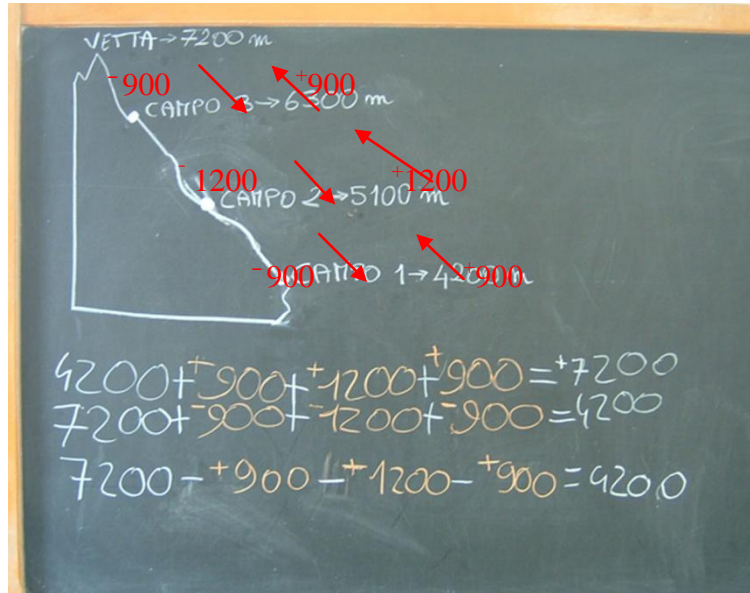 VETTA→7200 m
-900 +900
CAMPO 3→6300 m
-1200 +1200
CAMPO 2→5100 m
-900 +900
CAMPO 1→4200 m
4200++900++1200++900=+7200
7200+-900+-1200+-900=4200
7200-+900-+1200-+900=4200